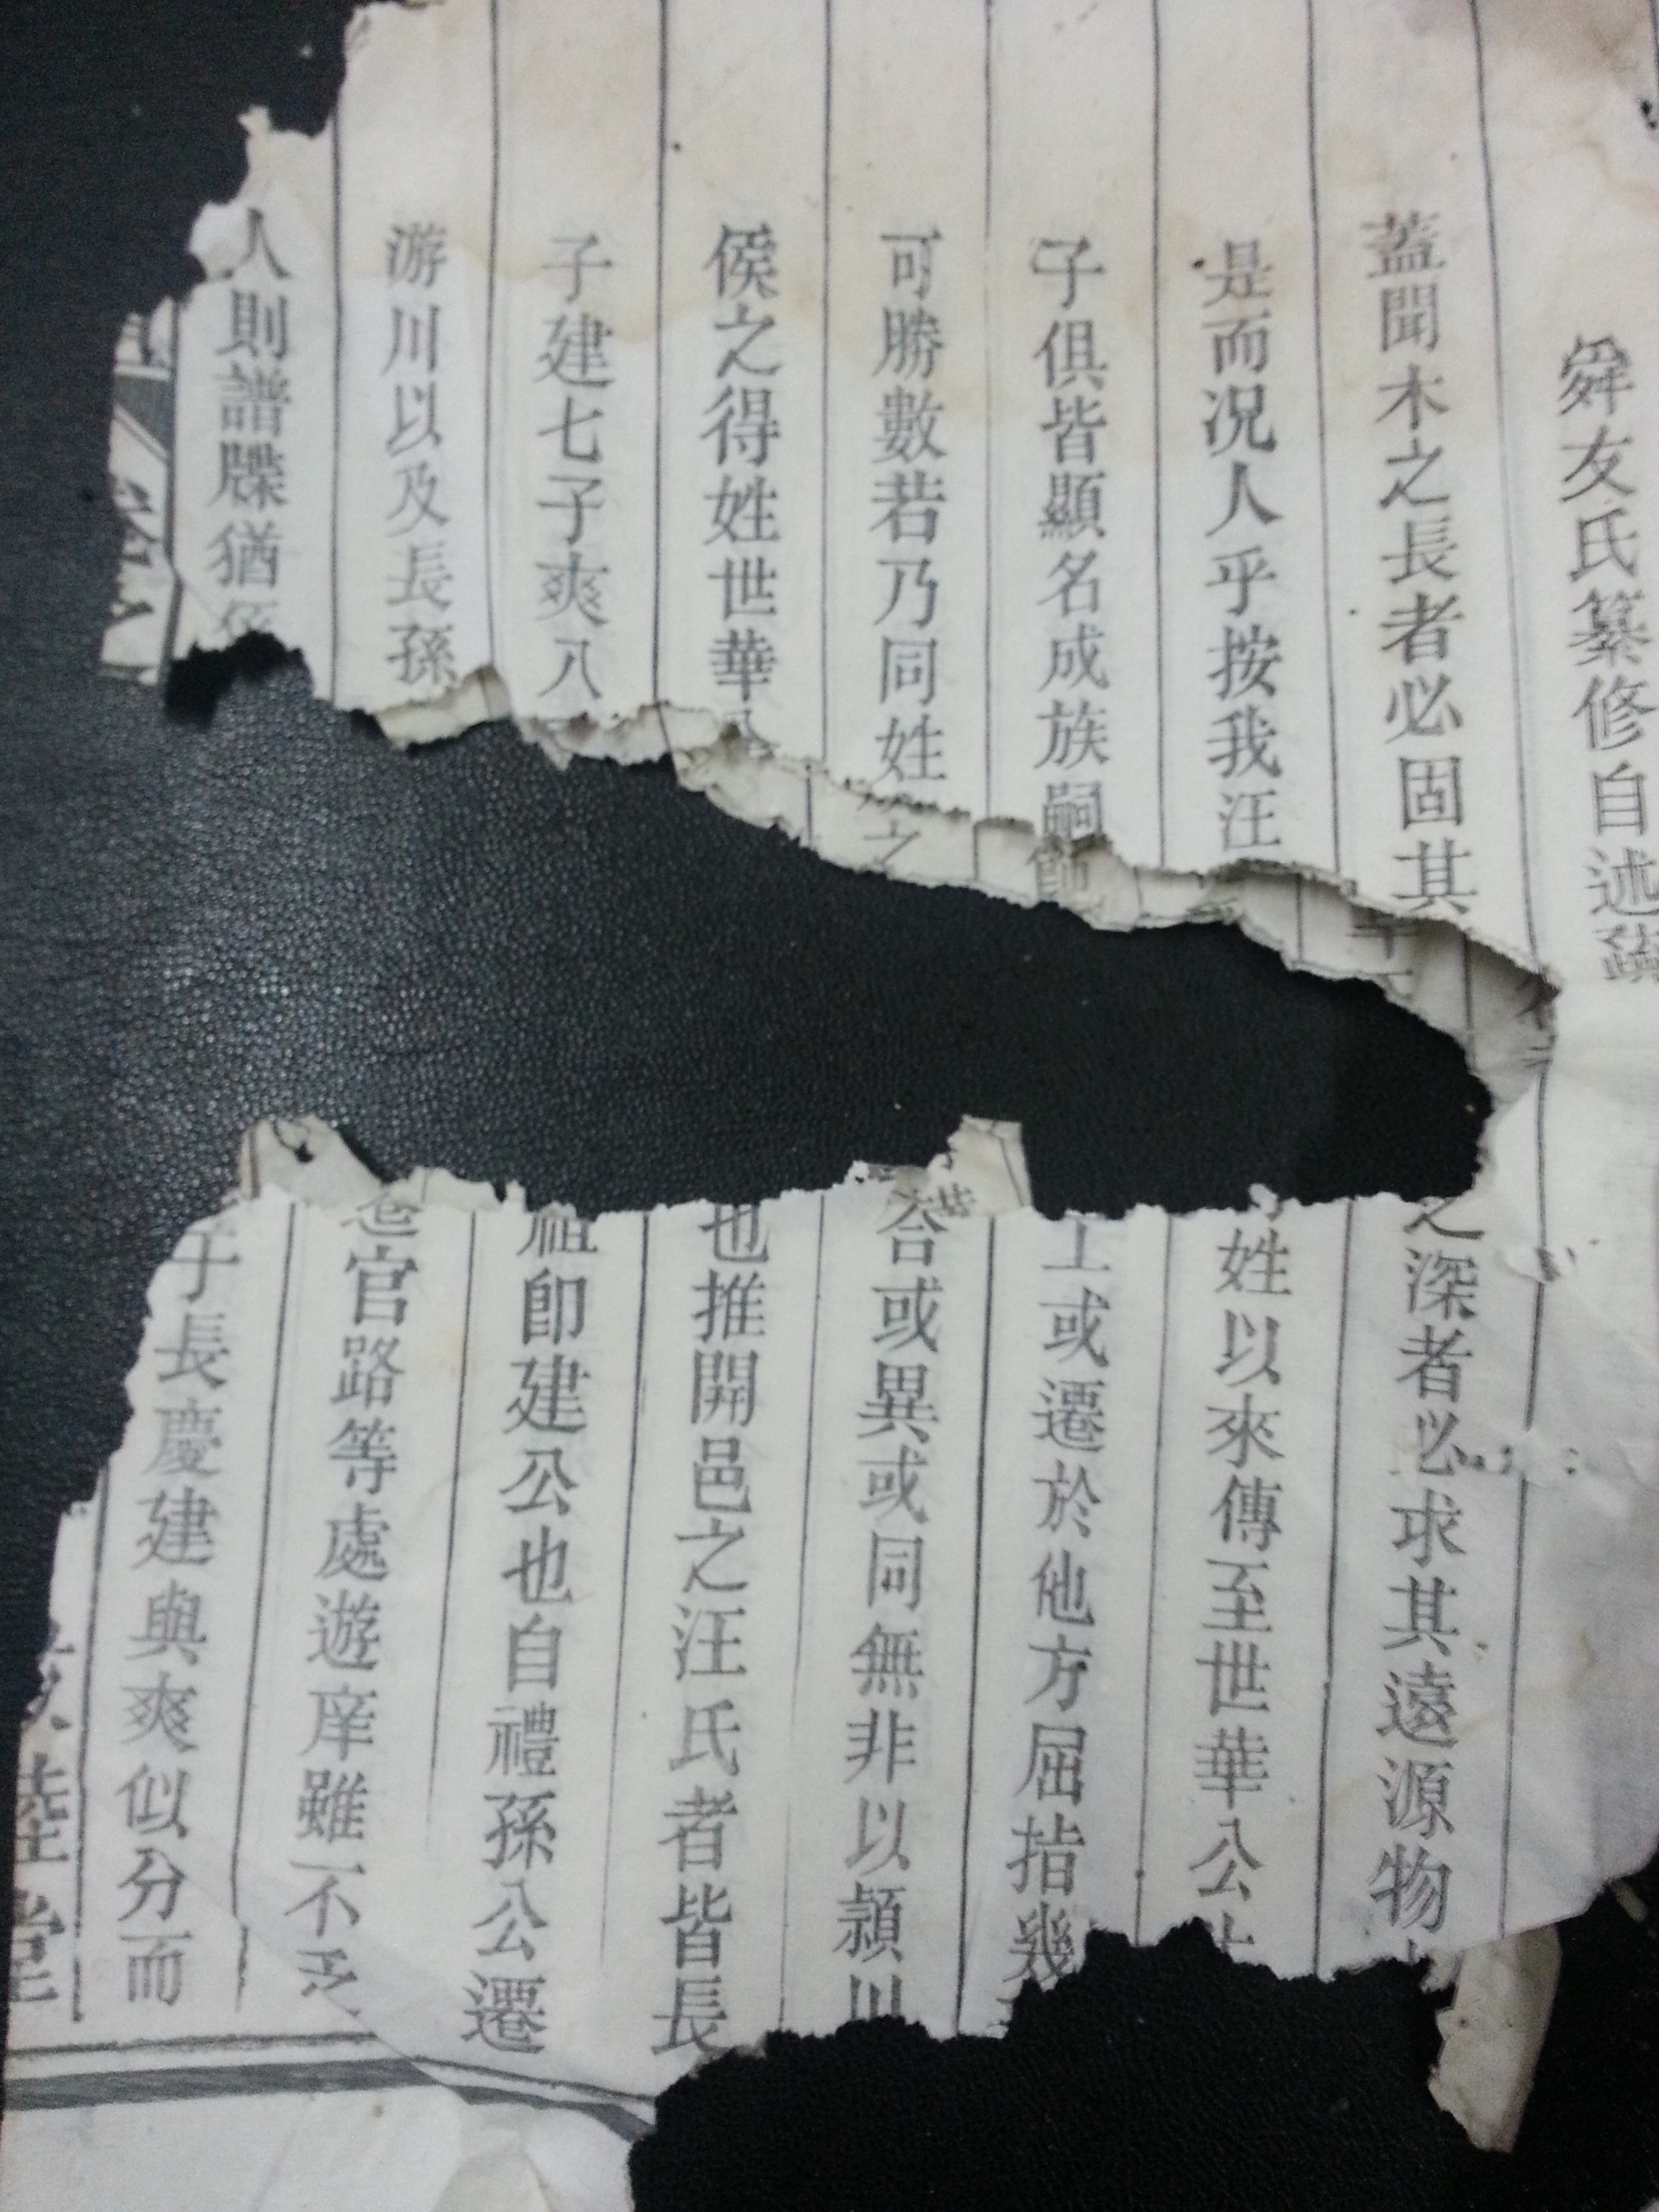 舜友氏纂修自述
蓋聞木之長者必固其
之深者必求其遠源物
是而况人乎按我汪
姓以來傳至世華公
子俱皆顯名成族嗣
或遷於他方屈指幾
可勝數若乃同姓之
或異或同無非以潁川
侯之得姓世華
也推開邑之汪氏者皆長
子建七子爽八
祖即建公也自禮孫公遷
游川以及長孫
官路等處遊庠雖不乏
人則譜牒猶
子長慶建與爽似分而
堂